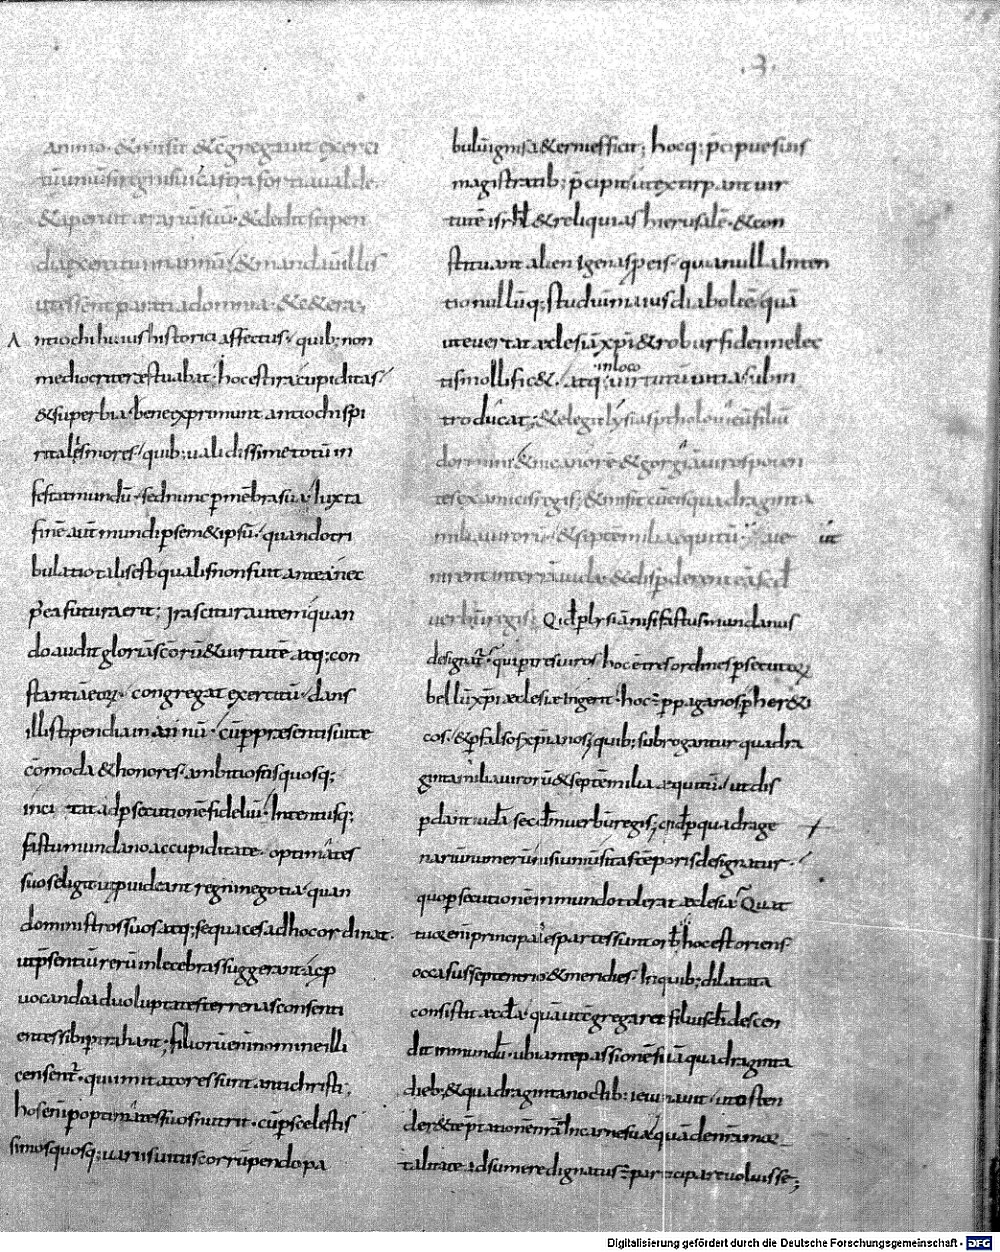 .3.
animo. & misit & cōgregauit exerci
tū uniuersi regni sui castra fortia ualde.
& aperuit ærariū suū. & dedit stipen
dia exercitui in annū. & mandauit illis
ut essent parati ad omnia. & cetera;
Antiochi huius historici affectus. quib; non
mediocriter æstuabat. hoc est ira cupiditas.
& superbia. bene exprimunt antiochi spi
ritales mores. quib; ualidissime totū in
festat mundū. sed nunc p membra sua. Iuxta
finē aut mundi p sem& ipsū. quando tri
bulatio talis est qualis non fuit antea nec
p ea futura erit; Irascitur autem iniquan
do audit gloriā scōrū & uirtutē. atq; con
stantiā eorum. congregat exercitū. dans
illis stipendia in annū. cū p præsentis uitæ
cōmoda & honores. ambitiosus quosq;
incitat ad psecutionē fideliū. Intentusq;
fastu mundano ac cupiditate. optimates
suos eligit ut puideant regni negotia. quan
do ministros suos atq; sequaces ad hoc ordinat.
ut psentiū rerū inlecebras suggerant. ac p
uocando ad uoluptates terrenas consenti
entes sibi ptrahant; filiorū enī nomine illi
censent. qui imitatores sunt antichristi;
hos enī p optimates suos nutrit. cū p scelestis
simos quosq; uariis uitiis corrūpendo pa
bulū ignis æterni efficit; hocq; pcipue suis
magistratib; pcipit ut extirpant uir
tutē isrhl & reliquias hierusalē. & con
stituant alienigenas p eis. quia nulli alii inten
tio null ūq; studiū maius diabolo ē. quā
ut euertat æclesiā xpi & robur fidei in elec
tis mollific&. atq; in loco uirtutū uitia subin
troducat; & elegit lysias ptholomeū filiū
domini & nicanorē & gorgiā uiros poten
tes ex amicis regis. & misit cū eis quadraginta
milia uirorū. & septē milia equitū. ut ue
nirent in terrā iuda. & disp derent eā secd
uerbū regis; Qid p lysiā nisi fastus mundanus
designat. qui p tres uiros hoc ē tres ordines psecutorum
bellū xpi æclesiæ ingerit. hoc ē p paganos p her&i
cos. & p falsos xpianos. quib; subrogantur quadra
ginta milia uirorū & septē milia equitū. ut dis
pdant iudā secdm uerbū regis; qd p quadrage
nariū numerū nisi uniuersitas tēporis designatur.
quo psecutionē in mundo tolerat æclesia. Quat
tuor enī principales partes sunt orb hoc est oriens
occasus septentrio & meridies. In quib; dilatata
consistit æccla. quā ut cōgregar& filius di descen
dit in mundū. ubi ante passionē suā quadraginta
dieb; & quadraginta noctib; ieiunauit. ut osten
der& tēptationē nram In carne sua. quā de nra mor
talitate adsumere dignatus ē participare uoluisse;
Digitalisierung gefördert durch die Deutsche Forschungsgemeinschaft - DFG